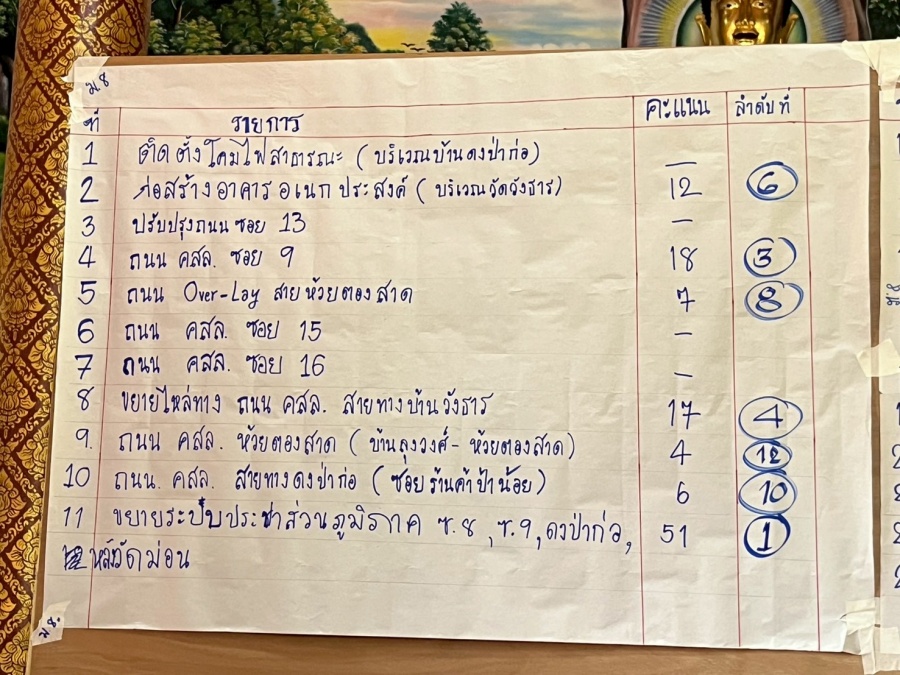 ม.8
ที่ รายการ คะแนน ลำดับที่
1 ติดตั้งโคมไฟสาธารณะ (บริเวณบ้านดงป่าก่อ) —
2 ก่อสร้างอาคารอเนกประสงค์ (บริเวณวัดวังธาร) 12 6
3 ปรับปรุงถนนซอย 13 —
4 ถนน คสล. ซอย 9 18 3
5 ถนน Over-Lay สายห้วยตองสาด 7 8
6 ถนน คสล. ซอย 15 —
7 ถนน คสล. ซอย 16 —
8 ขยายไหล่ทาง ถนน คสล. สายทางบ้านวังธาร 17 4
9. ถนน คสล. ห้วยตองสาด (บ้านลุงวงศ์ - ห้วยตองสาด) 4 12
10 ถนน. คสล. สายทางดงป่าก่อ (ซอยร้านค้าป้าน้อย) 6 10
11 ขยายระบบประปาส่วนภูมิภาค ซ.8, ซ.9, ดงป่าก่อ, 51 1
หลังวัดม่อน
ม8.